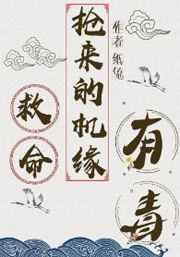 救命
抢来的机缘
有毒
作者 纸兔